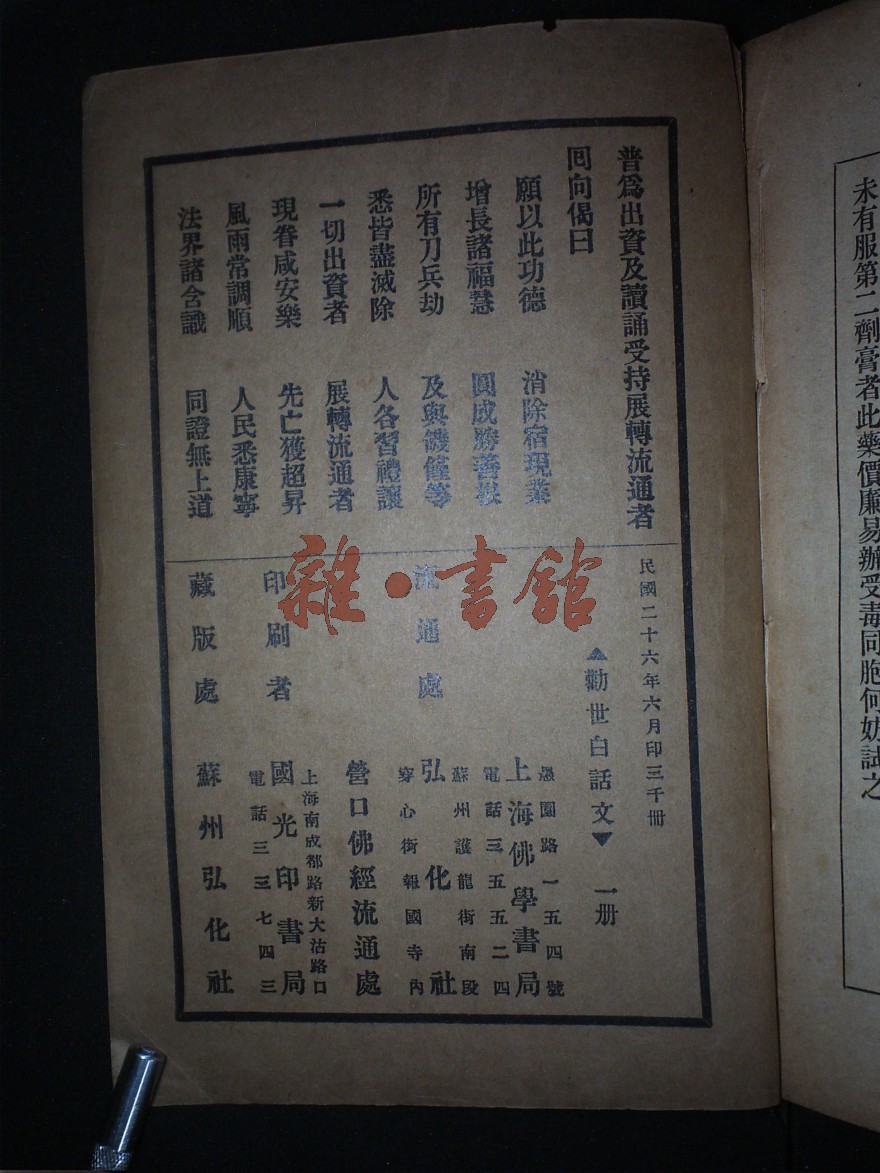 未有服第二劑膏者此藥價廉易辦受毒同胞何妨試之
普爲出資及讀誦受持展轉流通者
囘向偈曰
願以此功德 消除宿現業
增長諸福慧 圓成勝善根
所有刀兵劫 及與饑饉等
悉皆盡滅除 人各習禮讓
一切出資者 展轉流通者
現眷咸安樂 先亡獲超昇
風雨常調順 人民悉康寧
法界諸含識 同證無上道
民國二十六年六月印三千冊
▲勸世白話文▼ 一册
愚園路一五四號
上海佛學書局
電話三五五二四
流通處
蘇州護龍街南段
弘化社
穿心街報國寺內
營口佛經流通處
上海南成都路新大沽路口
印刷者 國光印書局
電話三三七四三
藏版處 蘇州弘化社
雜·書館